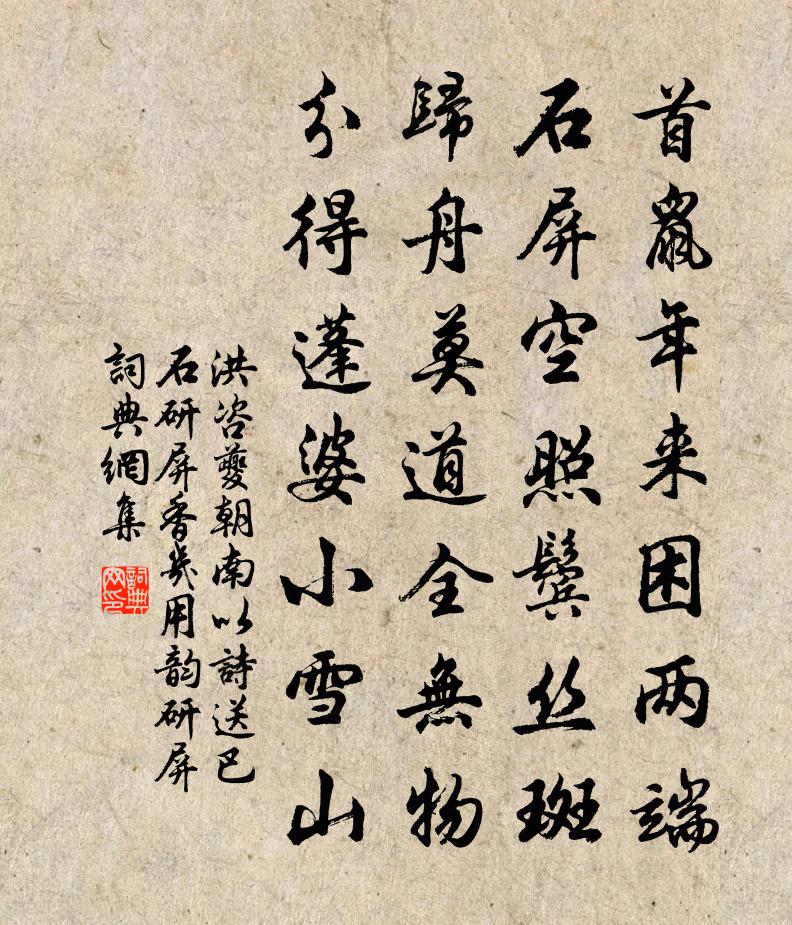 首鼠年来困两端
石屏空照鬓丝斑
歸舟莫道全無物
分得蓬婆小雪山
洪咨夔朝南以詩送巴
石研屏香几用韵研屏
詞典網集
詞典